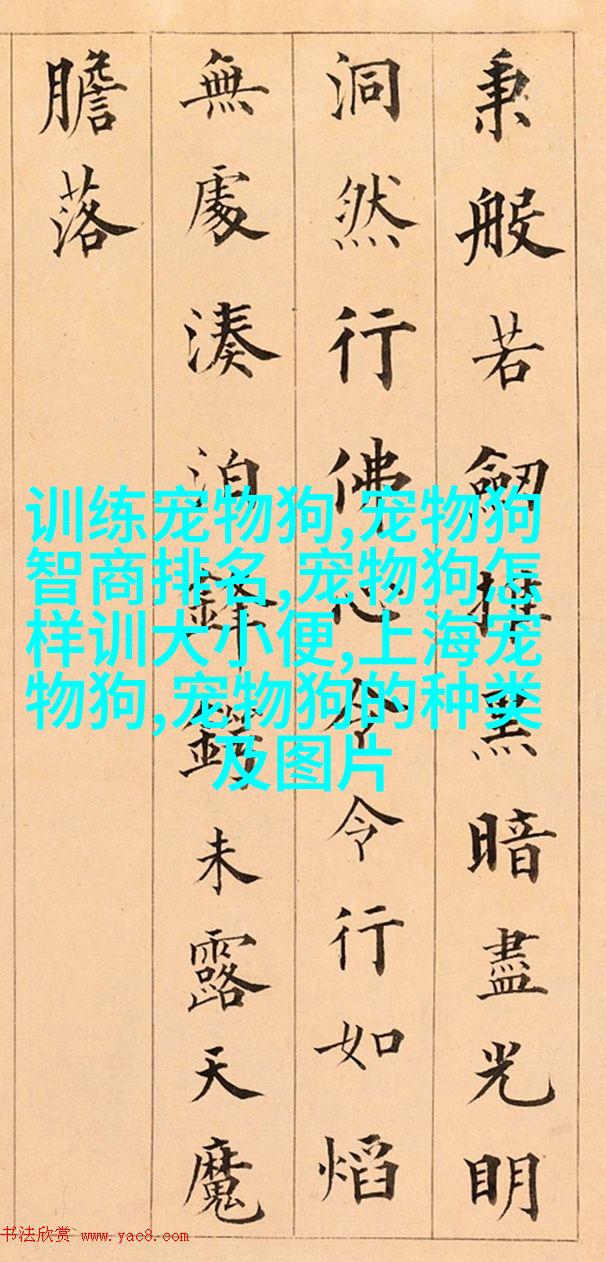 秉般若劒黑暗盡光明
洞然行佛心令令行如熖
無處湊泊鋒鍔未露天魔
膽落
训练宠物狗,宠物狗
智商排名,宠物狗怎
样训大小便,上海宠
物狗,宠物狗的种类
及图片
书法欣赏 www.yac8.com